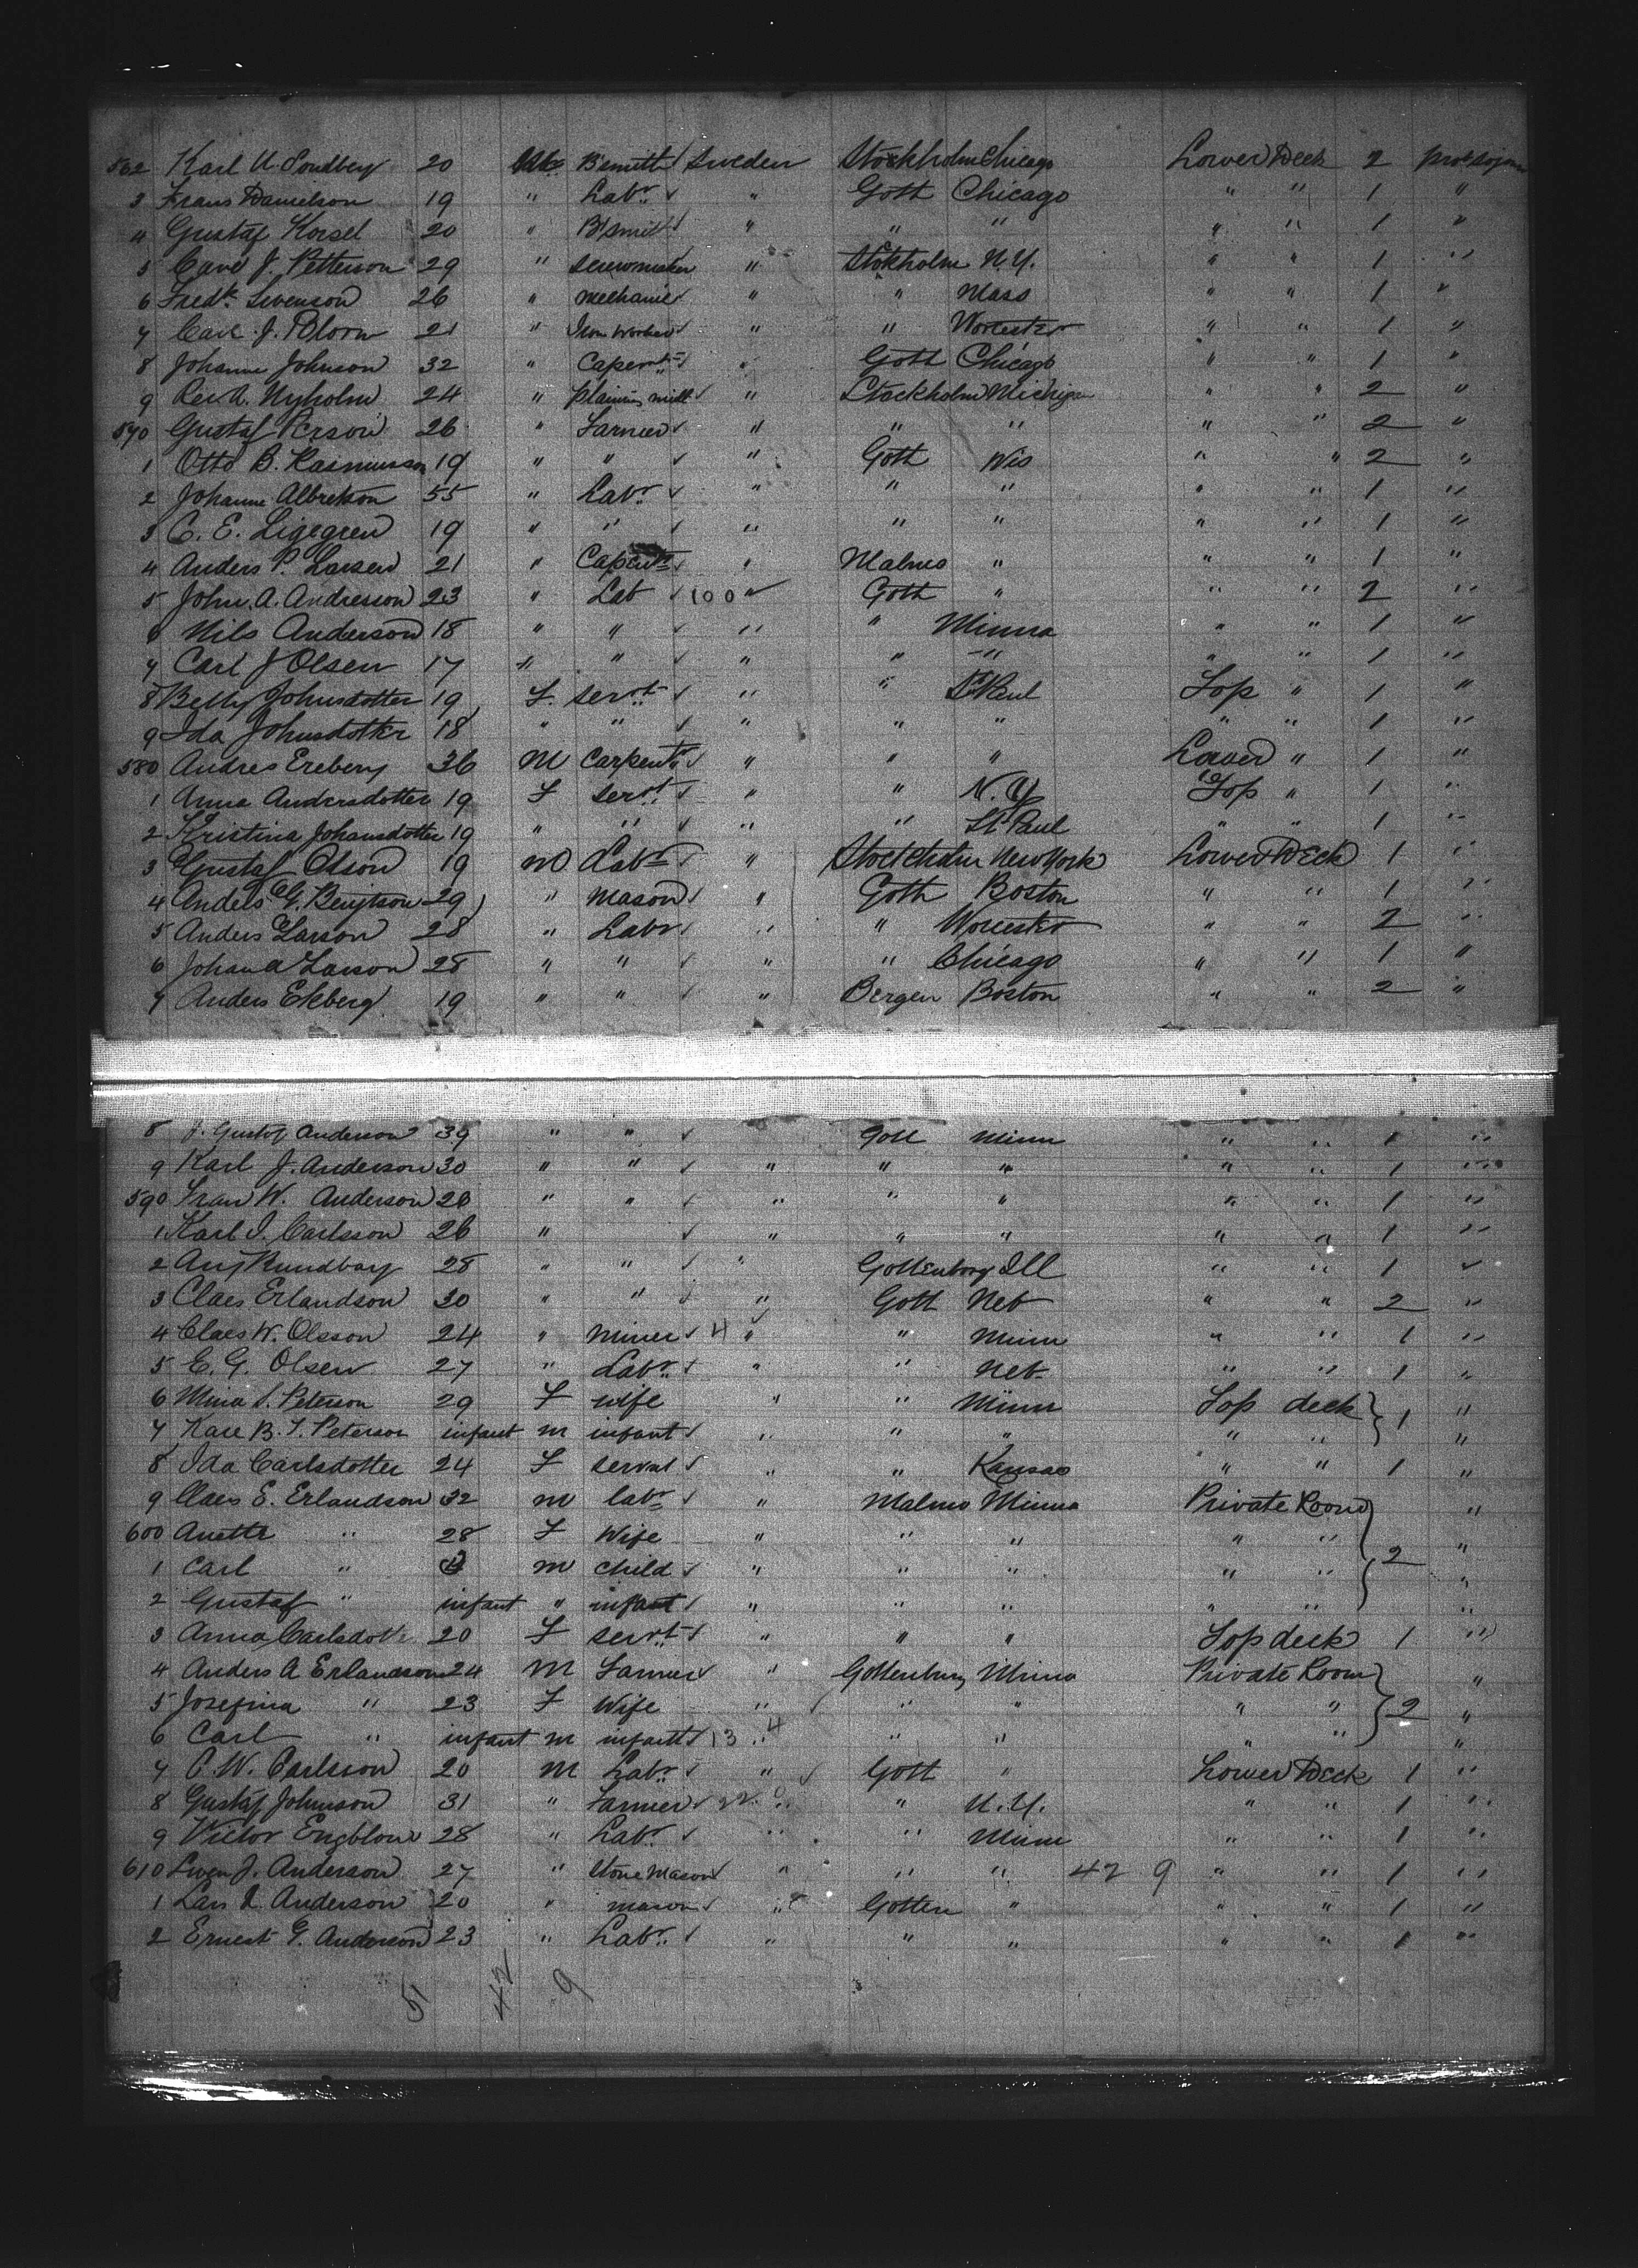 562 Karl A. Sondberg 20 M. Bsmith Sweden Stockholm Chicago Lower Deck 2 Prot Sojourn
3 Frans Danielson 19 " Labr " Goth Chicago " " 1 "
4 Gustaf Korsel 20 " B/smith " " " " " 1 "
5 J. Petterson 29 " screwmaker " Stokholm N.Y. " " 1 "
6 Fredk. Svenson 26 " mechanic " " Mass " " 1 "
7 Carl J. Blom 21 " Iron Worker " " Worcester " " 1 "
8 Johanne Johnson 32 " Capentr " Goth Chicago " " 1 "
9 A. Nyholm 24 " plaining mill " Stockholm Michigan " " 2 "
570 Gustaf Person 26 " Farmer " " " " " 2 "
1 Otto B. Rasmusson 19 " " " Goth Wis " " 2 "
2 Johanne Albretson 55 " Labr " " " " " 1 "
3 C. E. Ligegren 19 " " " " " " " 1 "
4 Anders P. Larsen 21 " Capentr " Malmo " " " 1 "
5 John. A. Andresson 23 " Lab 100 " Goth " " " 2 "
6 Nils Anderson 18 " " " " Minna " " 1 "
7 Carl J Olsen 17 " " " " " " " 1 "
8 Betty Johnsdotter 19 F. servt " " St Paul Top " 1 "
9 Ida Johnsdotter 18 " " " " " " " 1 "
580 Andres Ereberg 36 M Carpentr " " " Lower " 1 "
1 Anna Andersdotter 19 F servt " " N.Y Top " 1 "
2 Kristina Johansdotter 19 " " " " St Paul " " 1 "
3 Gustaf Olson 19 M Labr " Stockholm New York Lower Deck 1 "
4 Anders G. Bengtson 29 " Mason " Goth Boston " " 1 "
5 Anders Larson 28 " Labr " " Worcester " " 2 "
6 Johan A Larson 28 " " " " Chicago " " 1 "
7 Anders Ekberg 19 " " " Bergen Boston " " 2 "
8 J. Gustaf Anderson 39 " " Gott Minn " " 1 "
9 Karl J. Anderson 30 " " " " " " " 1 "
590 Fran W. Anderson 28 " " " " " " " 1 "
1 Karl J. Carlsson 26 " " " " " " 1 "
2 Aug 28 " " " Gottenborg Ill " " 1
3 Claes Erlandson 30 " " " Gott Neb " " 2 "
4 Claes W. Olsson 24 " Miner 4 " " Minn " " 1 "
5 E. G. Olsen 27 " Labr " " Neb " " 1 "
6 Mina S. Peterson 29 F wife " " Minn Top deck 1 "
7 B. T. Peterson infant M infant " " " " " "
8 Ida Carlsdotter 24 F servant " " Kansas " " 1 "
9 Claes E. Erlandson 32 M labr " Malmo Minna Private Room "
600 Anette " 28 F Wife " " " " " 2 "
1 Carl " M child " " " " " "
2 Gustaf " infant " infant " " " " " "
3 Anna Carlsdotter 20 F servt " " " Top deck 1 "
4 Anders A Erlandson 24 M Farmer " Gottenburg Minna Private Room "
5 Josefina " 23 F Wife " " " " " 2 "
6 Carl " infant M infant 13 4 " " " " "
7 C. W. Carlsson 20 M Labr " Gott " Lower Deck 1 "
8 Gustaf Johnson 31 " Farmer " " N.Y. " " 1 "
9 Victor Engblom 28 " Labr " " Minn " " 1 "
610 J. Anderson 27 " Stone Mason " " " 42 9 " " 1 "
1 Lars Anderson 20 " mason " Gotten " " " 1 "
2 Ernest G. Anderson 23 " Labr " " " " " 1 "
51 42 9